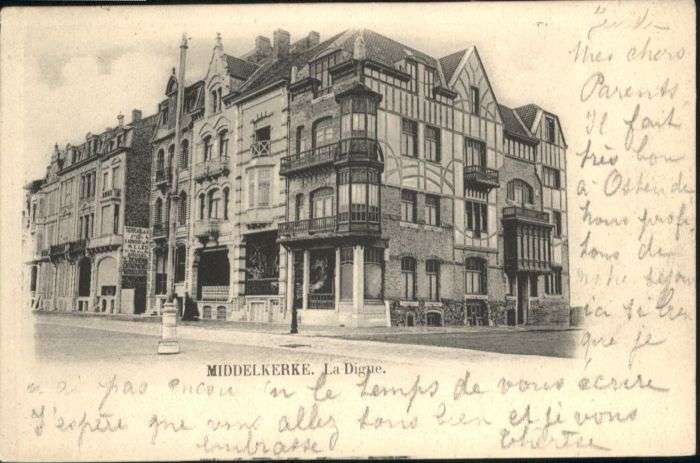 Jeudi
Mes chers
Parents,
Il fait
très bon
à Ostende
nous profi
tons de
notre séjour
ici si bien
que je
MIDDELKERKE. La Digue.
n'ai pas encore eu le temps de vous écrire
J'espère que vous allez tous bien et je vous
embrasse Thérèse